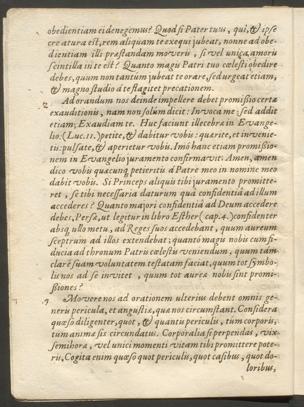 obedientiam ei denegemus? Quod si Pater tuus, qui, & ipse
creatura est, rem aliquam te exequi jubeat, nonne ad obe-
dientiam illi præstandam moveris, si vel unica amoris
scintilla in te est? Quanto magis Patri tuo cœlesti obedire
debes, quum non tantum jubeat te orare, sed urgeat etiam,
& magno studio à te flagitet precationem.
2. Ad orandum nos deinde impellere debet promissio certæ
exauditionis, nam non solùm dicit: Invoca me; sed addit
etiam; Exaudiam te. Huc faciunt illectebra in Evange-
lio: (Luc. 11.) petite, & dabitur vobis: quærite, et invenie-
tis: pulsate, & aperietur vobis. Imò hanc etiam promissio-
nem in Evangelio juramento confirmavit: Amen, amen
dico vobis quæcunq petieritis à Patre meo in nomine meo
dabit vobis. Si Princeps aliquis tibi juramento promitte-
ret, se tibi necessaria daturum quâ confidentiâ ad illum
accederes? Quanto majori confidentiâ ad Deum accedere
debes, Persæ, ut legitur in libro Esther (cap. 4.) confidenter
absq ullo metu, ad Reges suos accedebant, quum aureum
sceptrum ad illos extendebat; quantò magis nobis cum fi-
ducia ad thronum Patris cœlestis veniendum, quum tam
claræ suam voluntatem testatam faciat, quum tot symbo-
lis nos ad se invitet, quum tot aureæ nobis sint promi-
ssiones?
3. Movere nos ad orationem ulterius debent omnis ge-
neris pericula, et angustiæ, quæ nos circumstant. Considera
quæso diligenter, quot, & quantis periculis, tum corporis,
tum animæ sis circumdatus. Corporalia si perpendas, vix
semihora, vel unici momenti vitam tibi promittere pote-
ris, Cogita enim quæso quot periculis, quot casibus, quot do-
loribus,